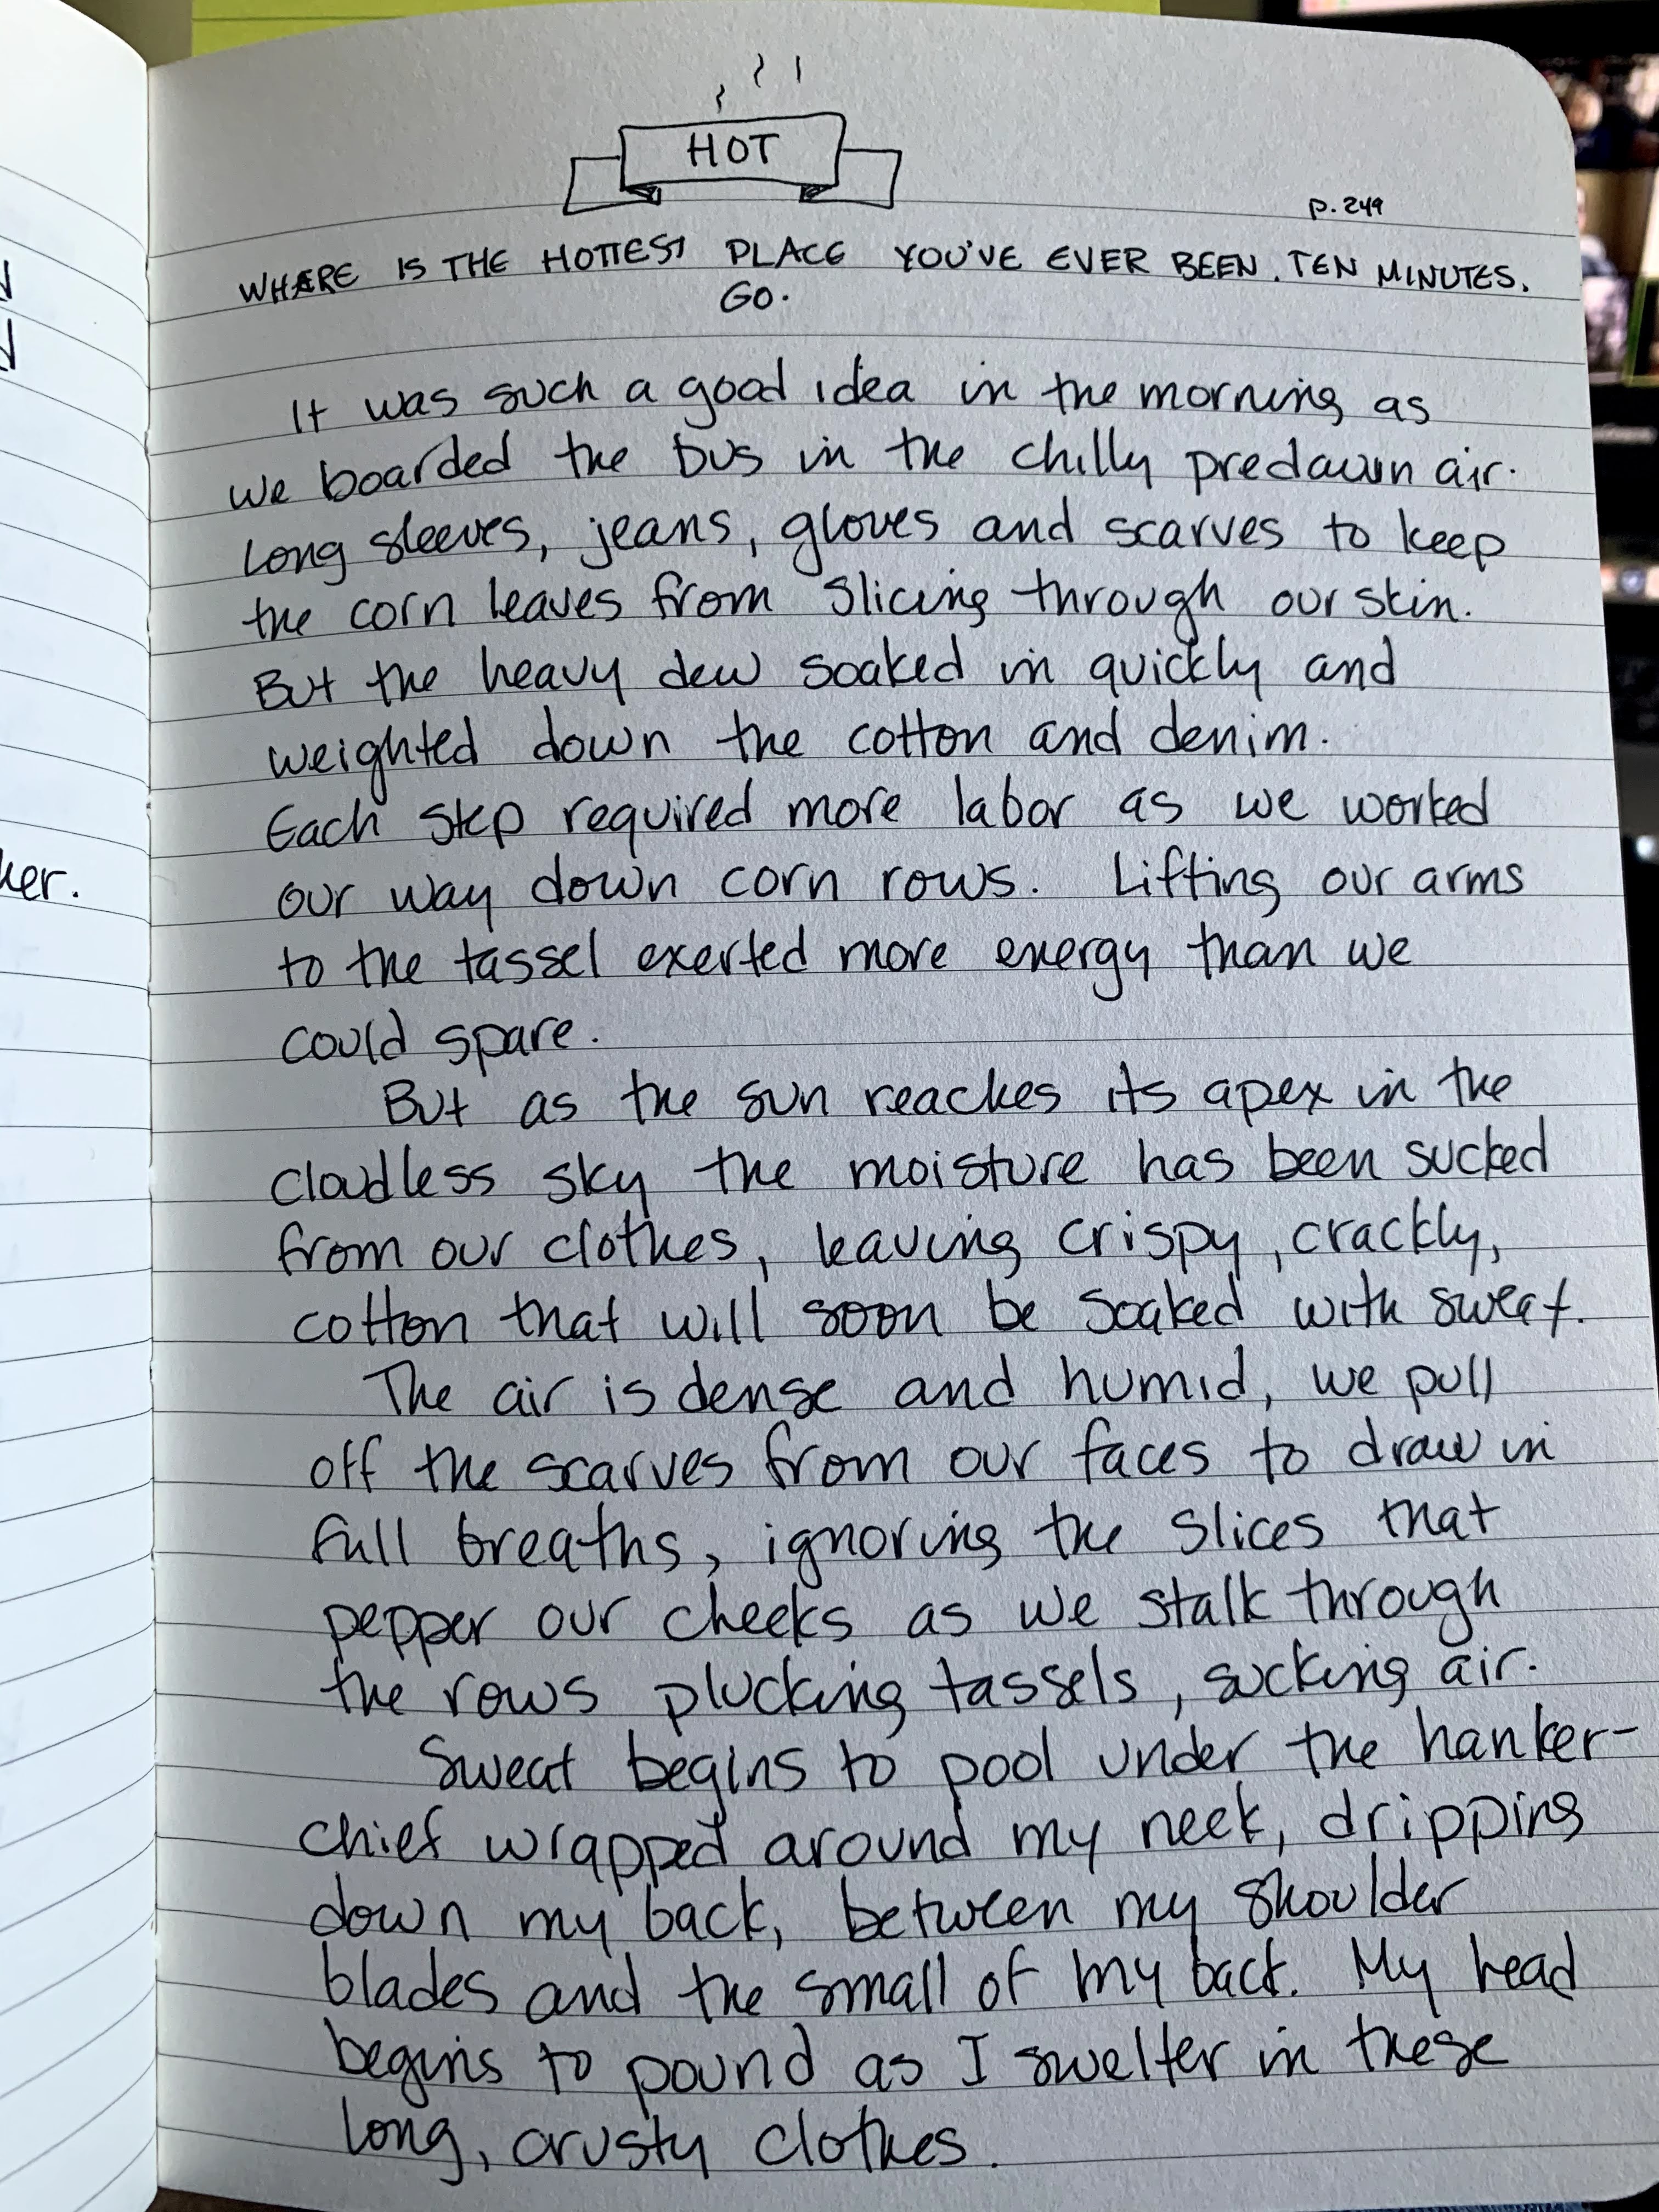 HOT
p. 249
WHERE IS THE HOTTEST PLACE YOU'VE EVER BEEN. TEN MINUTES.
GO.
It was such a good idea in the morning as
we boarded the bus in the chilly predawn air.
Long sleeves, jeans, gloves and scarves to keep
the corn leaves from slicing through our skin.
But the heavy dew soaked in quickly and
weighted down the cotton and denim.
Each step required more labor as we worked
our way down corn rows. Lifting our arms
to the tassel exerted more energy than we
could spare.
But as the sun reaches its apex in the
cloudless sky the moisture has been sucked
from our clothes, leaving crispy, crackly,
cotton that will soon be soaked with sweat.
The air is dense and humid, we pull
off the scarves from our faces to draw in
full breaths, ignoring the slices that
pepper our cheeks as we stalk through
the rows plucking tassels, sucking air.
Sweat begins to pool under the hanker-
chief wrapped around my neck, dripping
down my back, between my shoulder
blades and the small of my back. My head
begins to pound as I swelter in these
long, crusty clothes.
ker.